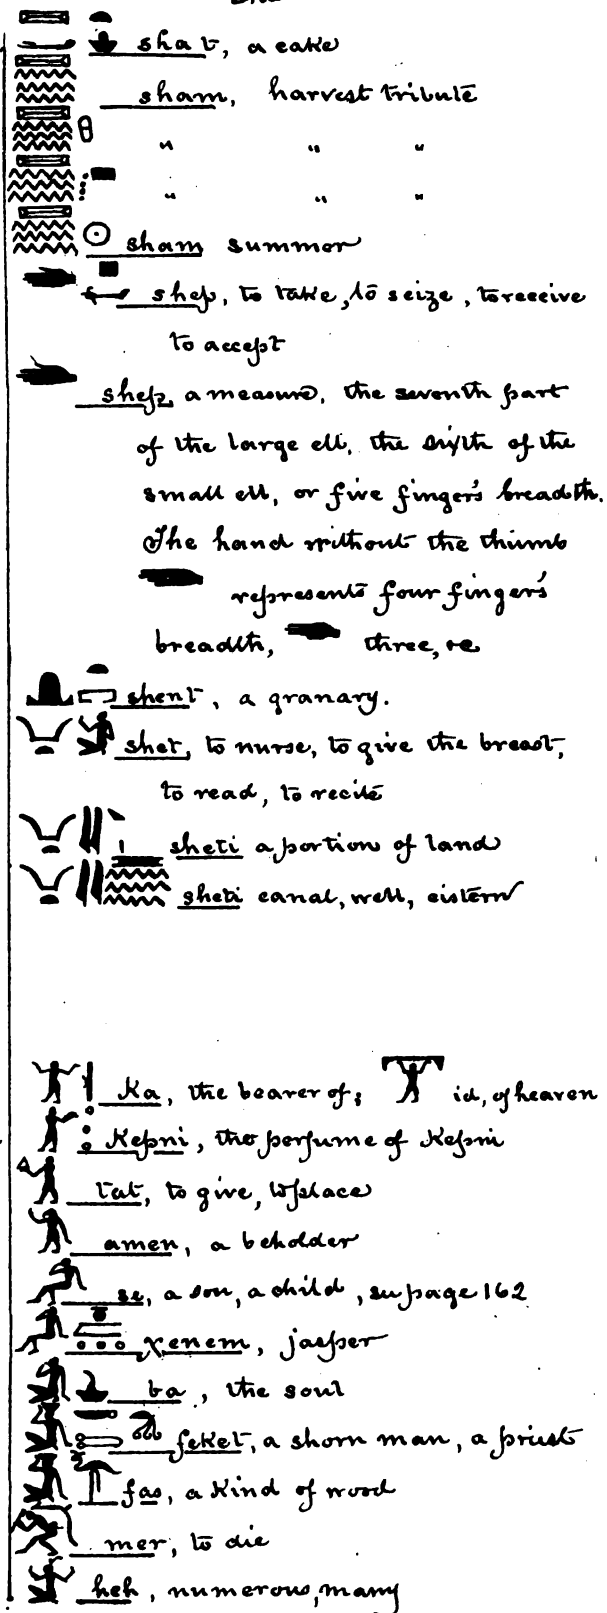 shat, a cake
sham, harvest tribute
" " "
" " "
sham summer
shep, to take, to seize, to receive
to accept
shep, a measure, the seventh part
of the large ell, the sixth of the
small ell, or five finger's breadth.
The hand without the thumb
represents four finger's
breadth, three, &c
shent, a granary.
shet, to nurse, to give the breast,
to read, to recite
sheti a portion of land
sheti canal, well, cistern
Ka, the bearer of; id, of heaven
Kepni, the perfume of Kepni
tat, to give, to place
amen, a beholder
se, a son, a child, see page 162
χenem, jasper
ba, the soul
feket, a shorn man, a priest
fas, a kind of wood
mer, to die
heh, numerous, many